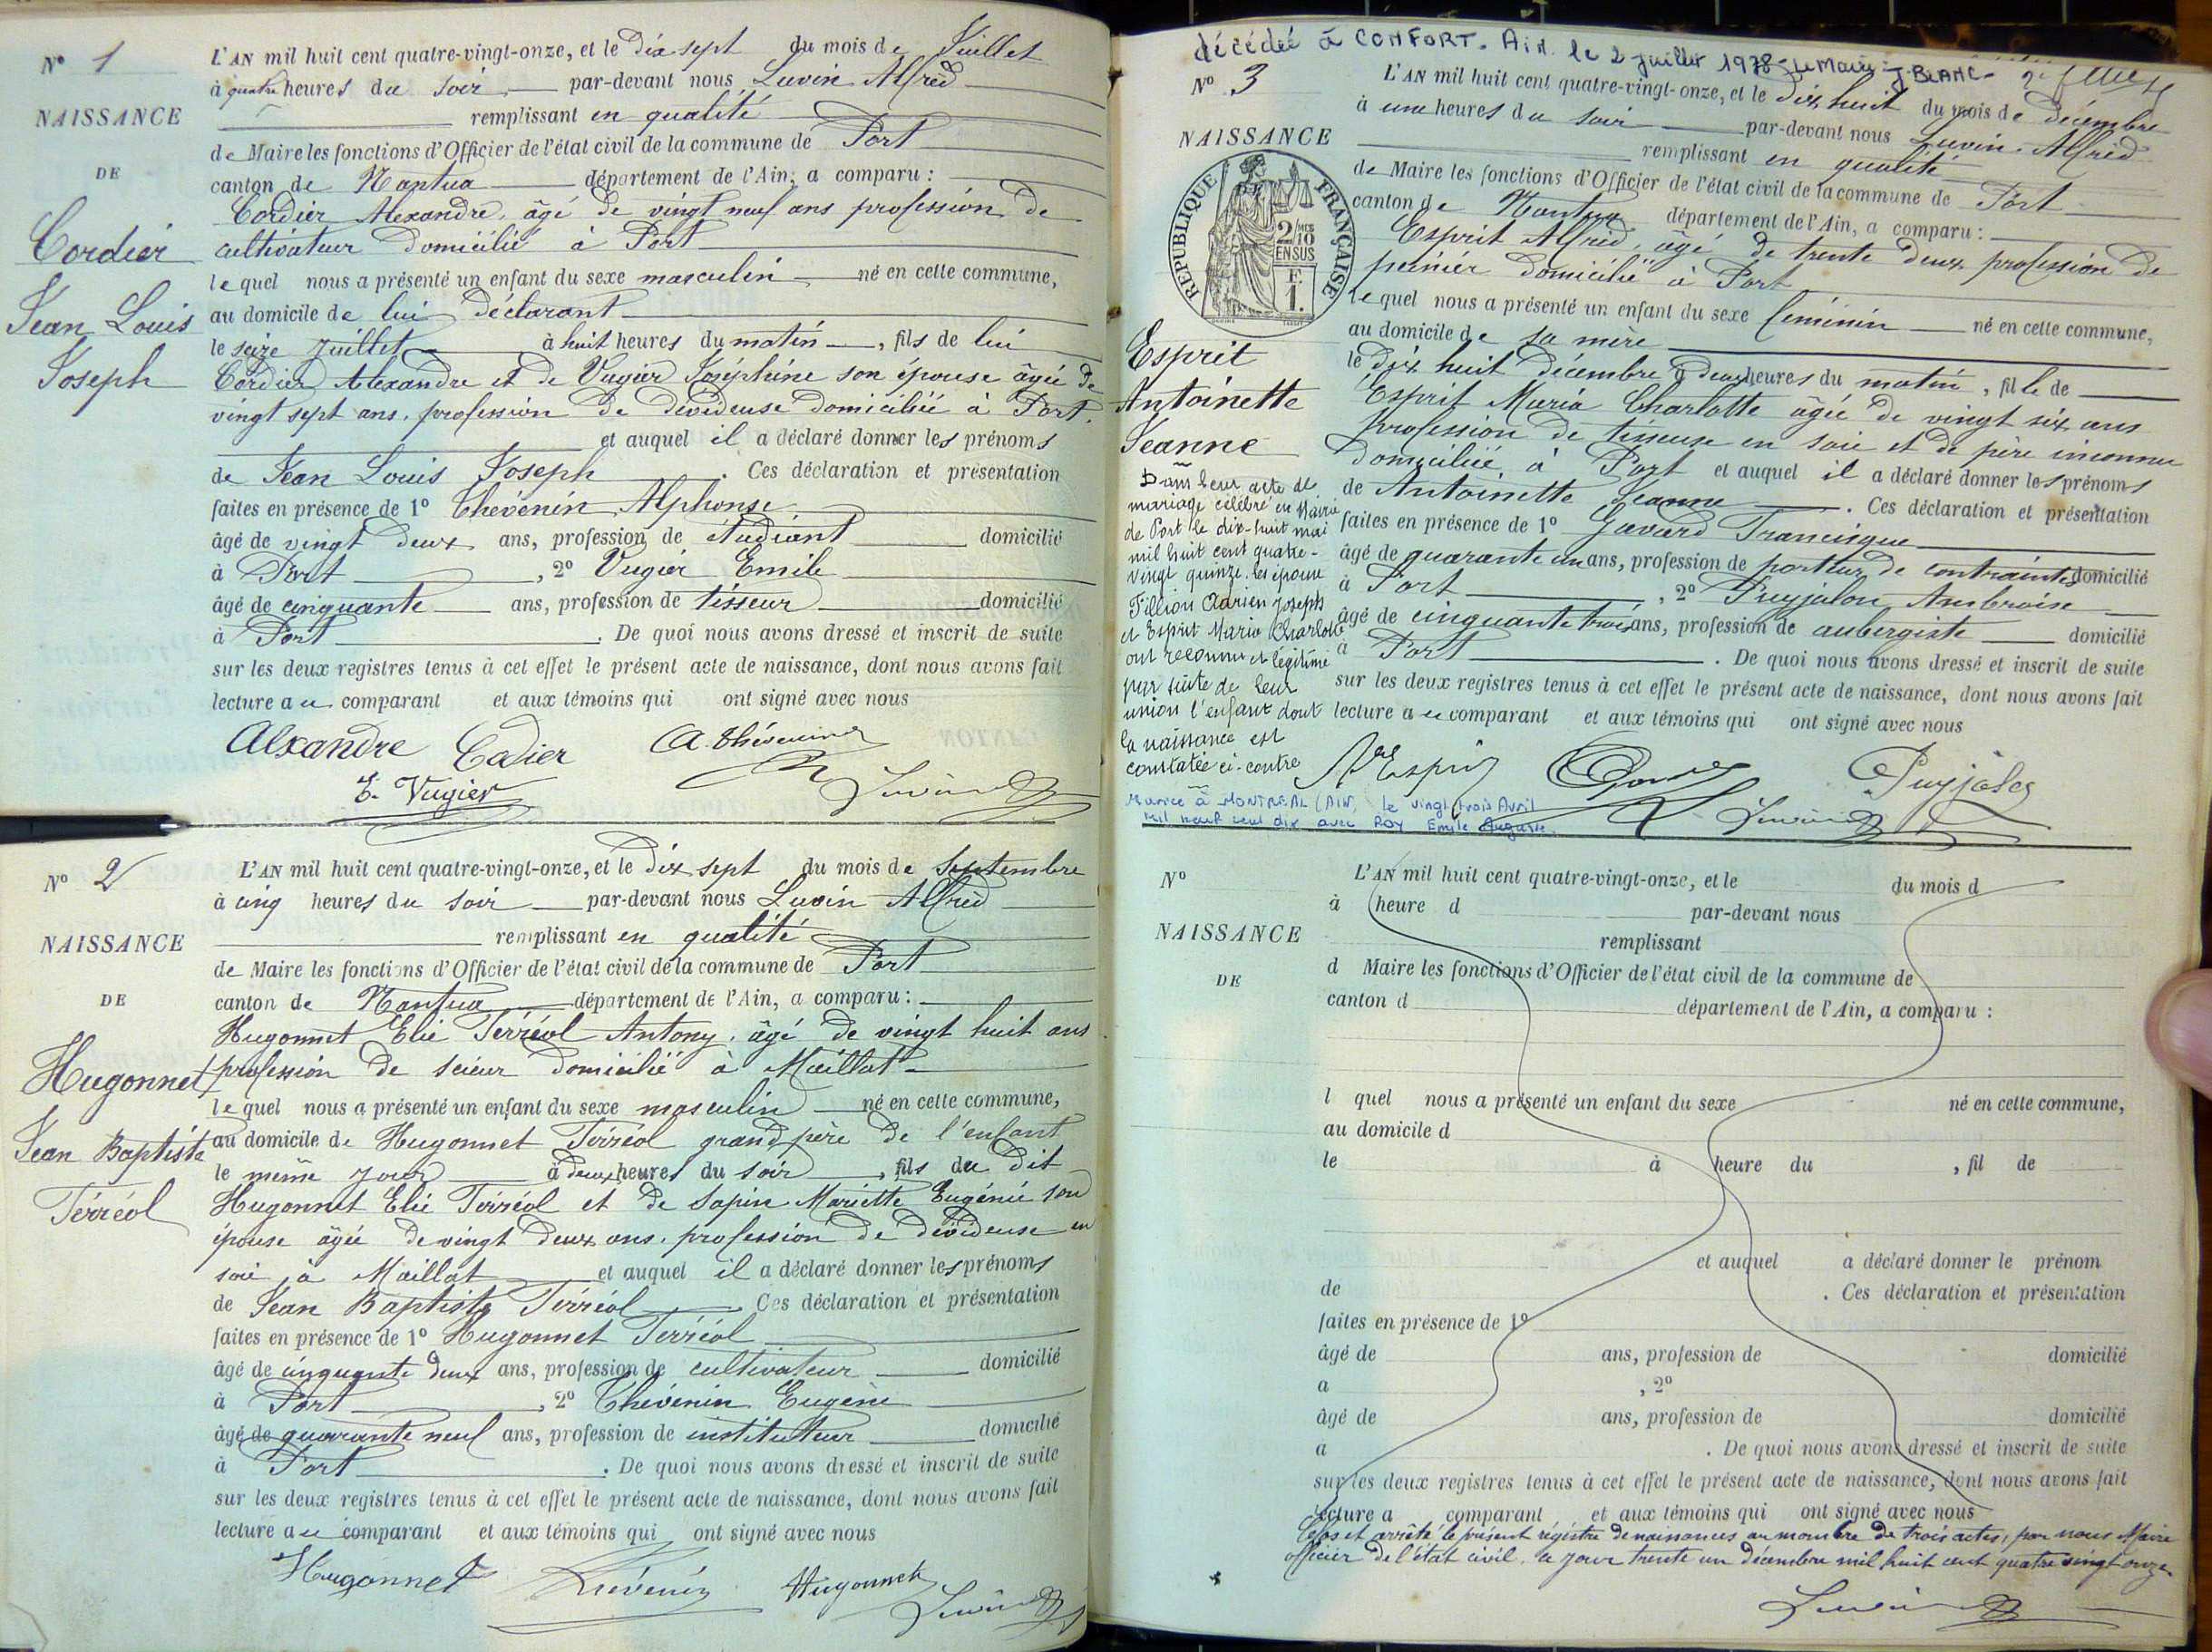 N° 1
NAISSANCE
DE
Cordier
Jean Louis
Joseph
L'AN mil huit cent quatre-vingt-onze, et le dix sept du mois de Juillet
à quatre heures du soir par-devant nous Luvin Alfred
remplissant en qualité
de Maire les fonctions d'Officier de l'état civil de la commune de Port
canton de Nantua département de l'Ain, a comparu :
Cordier Alexandre, âgé de vingt neuf ans profession de
cultivateur domicilié à Port
lequel nous a présenté un enfant du sexe masculin né en cette commune,
au domicile de lui déclarant
le seize Juillet à huit heures du matin, fils de lui
Cordier Alexandre et de Vugier Joséphine son épouse âgée de
vingt sept ans, profession de dévideuse domiciliée à Port.
et auquel il a déclaré donner les prénoms
de Jean Louis Joseph. Ces déclaration et présentation
faites en présence de 1° Thévenin Alphonse
âgé de vingt deux ans, profession de étudiant domicilié
à Port, 2° Vugier Emile
âgé de cinquante ans, profession de tisseur domicilié
à Port. De quoi nous avons dressé et inscrit de suite
sur les deux registres tenus à cet effet le présent acte de naissance, dont nous avons fait
lecture au comparant et aux témoins qui ont signé avec nous
Alxandre Codier A. Thévenin
E. Vugier Luvin
N° 2
NAISSANCE
DE
Hugonnet
Jean Baptiste
Terréol
L'AN mil huit cent quatre-vingt-onze, et le dix sept du mois de Septembre
à cinq heures du soir par-devant nous Luvin Alfred
remplissant en qualité
de Maire les fonctions d'Officier de l'état civil de la commune de Port
canton de Nantua département de l'Ain, a comparu :
Hugonnet Elie Terréol Antony, âgé de vingt huit ans
profession de scieur domicilié à Maillat
lequel nous a présenté un enfant du sexe masculin né en cette commune,
au domicile de Hugonnet Terréol grand père de l'enfant
le même jour à deux heures du soir, fils du dit
Hugonnet Elie Terréol et de Sapin Mariette Eugénie son
épouse âgée de vingt deux ans, profession de dévideuse en
soie à Maillat et auquel il a déclaré donner les prénoms
de Jean Baptiste Terréol Ces déclaration et présentation
faites en présence de 1° Hugonnet Terréol
âgé de cinquante deux ans, profession de cultivateur domicilié
à Port, 2° Thévenin Eugène
âgé de quarante neuf ans, profession de instituteur domicilié
à Port. De quoi nous avons dressé et inscrit de suite
sur les deux registres tenus à cet effet le présent acte de naissance, dont nous avons fait
lecture au comparant et aux témoins qui ont signé avec nous
Hugonnet Thévenin Hugonnet Luvin
décédée à CONFORT. Ain. le 2 juillet 1978 - le Maire : J. BLANC -
N° 3
NAISSANCE
REPUBLIQUE FRANÇAISE
2/10 EN SUS
F. 1.
Esprit
Antoinette
Jeanne
Dans leur acte de
mariage célébré en Mairie
de Port le dix-huit mai
mil huit cent quatre-
vingt quinze les époux
Fillion Adrien Joseph
et Esprit Maria Charlotte
ont reconnu et légitimé
par suite de leur
union l'enfant dont
la naissance est
constatée ci-contre
Mariée à MONTREAL (AIN) le vingt trois Avril
mil neuf cent dix avec ROY Emile Auguste.
L'AN mil huit cent quatre-vingt-onze, et le dix huit du mois de décembre
à une heures du soir par-devant nous Luvin Alfred
remplissant en qualité
de Maire les fonctions d'Officier de l'état civil de la commune de Port
canton de Nantua département de l'Ain, a comparu :
Esprit Alfred, âgé de trente deux profession de
fermier domicilié à Port
lequel nous a présenté un enfant du sexe féminin né en cette commune,
au domicile de sa mère
le dix huit décembre à deux heures du matin, fille de
Esprit Maria Charlotte âgée de vingt six ans
profession de tisseuse en soie et de père inconnu
domiciliée à Port et auquel il a déclaré donner les prénoms
de Antoinette Jeanne. Ces déclaration et présentation
faites en présence de 1° Gavard Francisque
âgé de quarante un ans, profession de porteur de contraintes domicilié
à Port, 2° Puyjalon Ambroise
âgé de cinquante trois ans, profession de aubergiste domicilié
à Port. De quoi nous avons dressé et inscrit de suite
sur les deux registres tenus à cet effet le présent acte de naissance, dont nous avons fait
lecture au comparant et aux témoins qui ont signé avec nous
Esprit Puyjalon
Luvin
N°
NAISSANCE
DE
L'AN mil huit cent quatre-vingt-onze, et le du mois d
à heure d par-devant nous
remplissant
d Maire les fonctions d'Officier de l'état civil de la commune de
canton d département de l'Ain, a comparu :
l quel nous a présenté un enfant du sexe né en cette commune,
au domicile d
le à heure du , fil de
et auquel a déclaré donner le prénom
de . Ces déclaration et présentation
faites en présence de 1°
âgé de ans, profession de domicilié
a , 2°
âgé de ans, profession de domicilié
a . De quoi nous avons dressé et inscrit de suite
sur les deux registres tenus à cet effet le présent acte de naissance, dont nous avons fait
lecture a comparant et aux témoins qui ont signé avec nous
Clos et arrêté le présent régistre de naissances au nombre de trois actes, par nous Maire
officier de l'état civil, ce jour trente un décembre mil huit cent quatre vingt onze.
Luvin